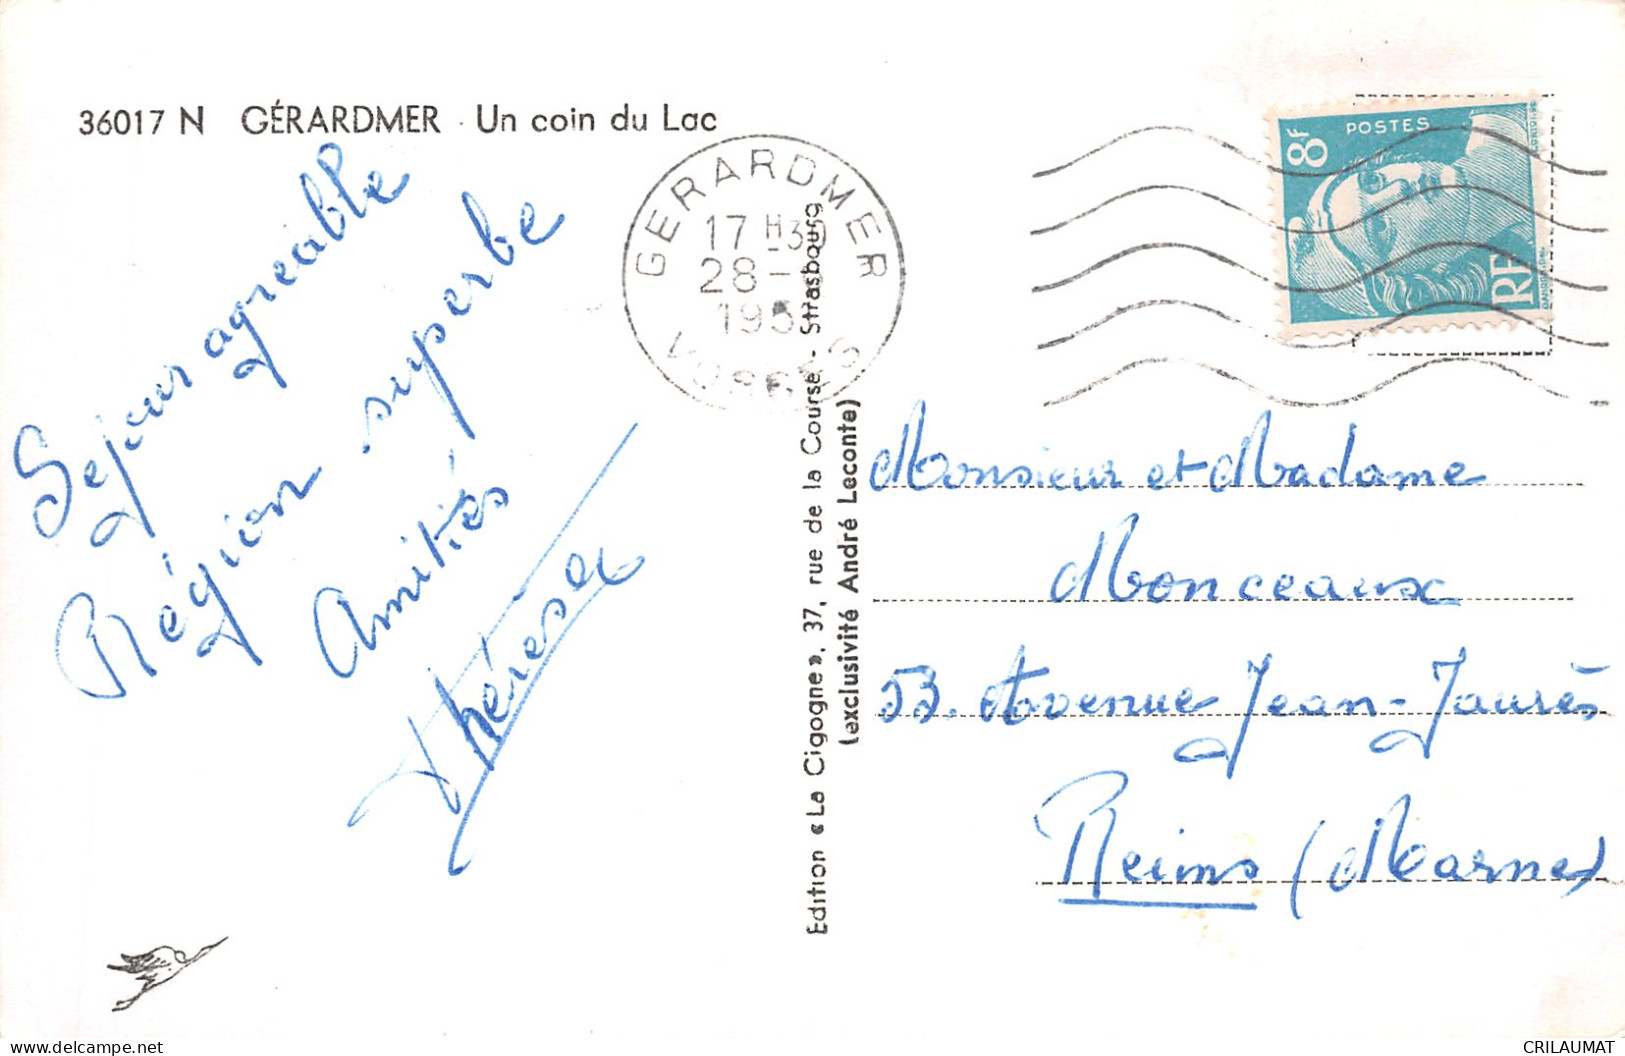 36017 N GÉRARDMER - Un coin du Lac
Séjour agréable
Région superbe
Amitiés
Thérèse
GERARDMER
17 H30
28 -
195
VOSGES
POSTES
8F
RF
Edition «La Cigogne», 37, rue de la Course - Strasbourg
(exclusivité André Leconte)
Monsieur et Madame
Monceaux
53. Avenue Jean-Jaurès
Reims (Marne)
CRILAUMAT